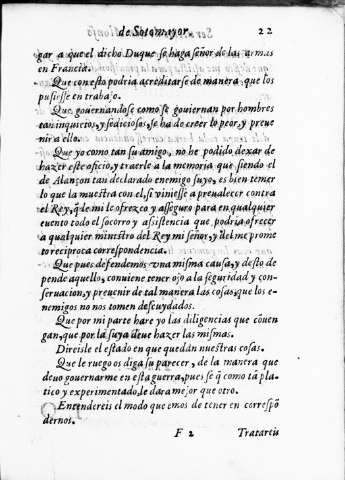 de Sotomayor. 22
gar a que el dicho Duque se haga señor de las armas
en Francia.
Que con esto podria acreditarse de manera, que los
pusiesse en trabajo.
Que, gouernandose como se gouiernan por hombres
tan inquietos, y sediciosos, se ha de creer lo peor, y preue
nir a ello.
Que yo como tan su amigo, no he podido dexar de
hazer este oficio, y traerle a la memoria que siendo el
de Alanzon tan declarado enemigo suyo, es bien temer
lo que la muestra con el, si viniesse a preualecer contra
el Rey, q̃ de mi le ofrezco y asseguro para en qualquier
euento todo el socorro y assistencia que podria ofrecer
a qualquier ministro del Rey mi señor, y del me prome
to reciproca correspondencia.
Que pues defendemos vna misma causa, y desto de
pende aquello, conuiene tener ojo a la seguridad y con-
seruacion, y preuenir de tal manera las cosas, que los e-
nemigos no nos tomen descuydados.
Que por mi parte hare yo las diligencias que cõuen
gan, que por la suya deue hazer las mismas.
Direisle el estado en que quedan nuestras cosas.
Que le ruego os diga su parecer, de la manera que
deuo gouernarme en esta guerra, pues se q̃ como tã pla-
tico y experimentado, le dara mejor que otro.
Entendereis el modo que emos de tener en correspõ
dernos.
F 2 Tratareis